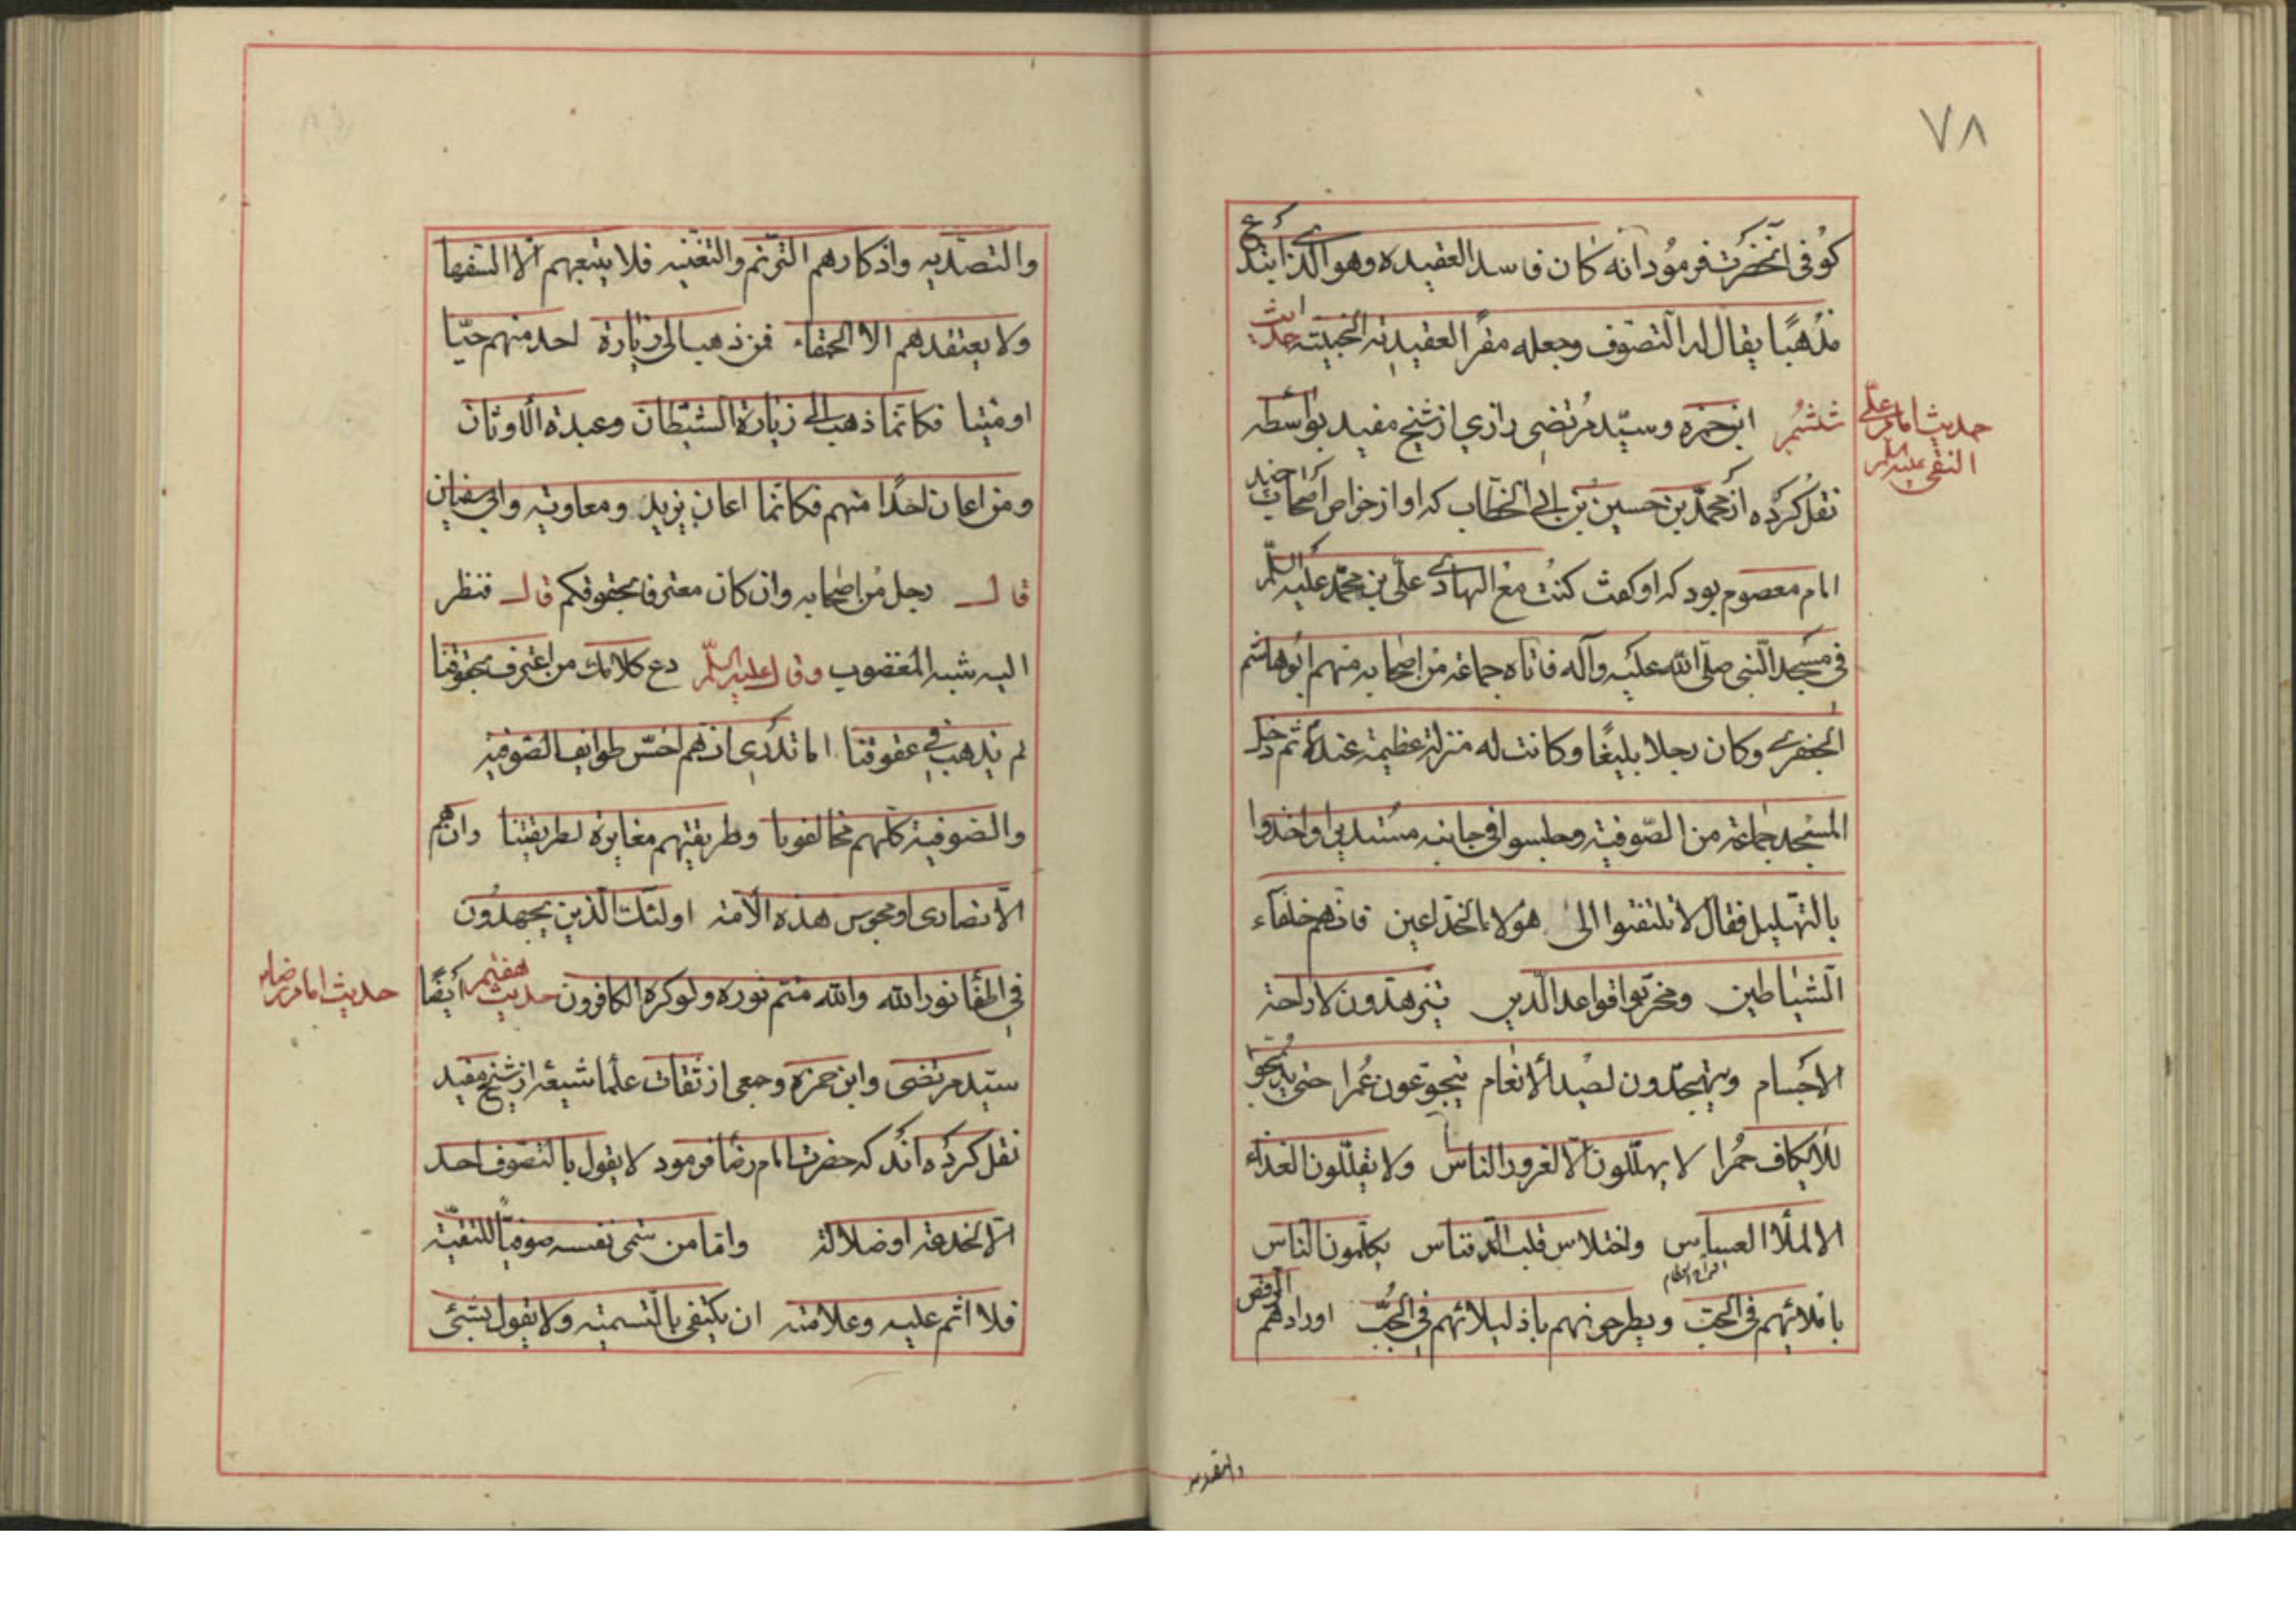 ٧٨
كوفى آنحضرت فرمود انه كان فاسد العقيده وهو الذى ابتدع
مذهبًا يقال له التصوف وجعله مفرا لعقيدته الخبيثه حديث
ششم ابن حمزه وسيّد مرتضى رازي از شيخ مفيد بواسطه
حديث امام على
النقى عليه السلم
نقل كرده از محمّد بن حسين بن ابى الخطاب كه او از خواص اصحاب چند
امام معصوم بود كه او كفت كنت مع الهادى على بن محمّد عليه السلّم
فى مسجد النّبى صلّى الله عليه وآله فاتاه جماعة من اصحابه منهم ابوهاشم
الجعفرى وكان رجلا بليغًا وكانت له منزلة عظيمة عنده ثم دخل
المسجد جماعة من الصّوفية وجلسوا فى جانبه مستديرا واخذوا
بالتهليل فقال لا تلتفتوا الى هولاء الخدّاعين فانهم خلفاء
الشياطين ومخرّبوا قواعد الدّين يتزهّدون لاراحة
الاجسام ويتهجّدون لصيد الانعام يتجوّعون عُمرا حتى يديخوا
للايكاف حمُرا لا يهلّلون الا لغرور الناس ولا يقلّلون الغذاء
الا لملأ العساس واختلاس قلب الدفناس يكلّمون الناس
باملائهم فى الحبّ ويطرحونهم باذليلائهم فى الجُبّ اورادهم الرقص
والتصديه
والتصديه واذكارهم الترّنم والتغنيه فلا يتبعهم الا السفها
ولا يعتقدهم الا الحمقاء فمن ذهب الى زيارة احد منهم حيّا
او ميتا فكانما ذهب الى زيارة الشيطان وعبدة الاوثان
ومن اعان احدًا منهم فكانما اعان يزيد ومعاويه وابى سفيان
قال رجل من اصحابه وان كان معترفا بحقوقكم قال فنظر
اليه شبه المغضوب وقال عليه السلّم دع كلامك من اعترف بحقوقنا
لم يذهب فى عقوقنا اما تدرى انهم اخسّ طوايف الصّوفيه
والصوفية كلهم مخالفونا وطريقتهم مغايرة لطريقتنا وان هم
الا نصارى او مجوس هذه الامة اولئك الّذين يجهدون
فى اطفا نور الله والله متم نوره ولو كره الكافرون حديث هفتم ايضًا
حديث امام رضا
سيّد مرتضى وابن حمزه وجمعى از ثقات علما شيعه از شيخ مفيد
نقل كرده اند كه حضرت امام رضا فرمود لا يقول بالتصوف احد
الا لخدعة او ضلالة وامّا من سمى نفسه صوفيّا للتقيّة
فلا اثم عليه وعلامته ان يكتفى بالتسميه ولا يقول بشئ